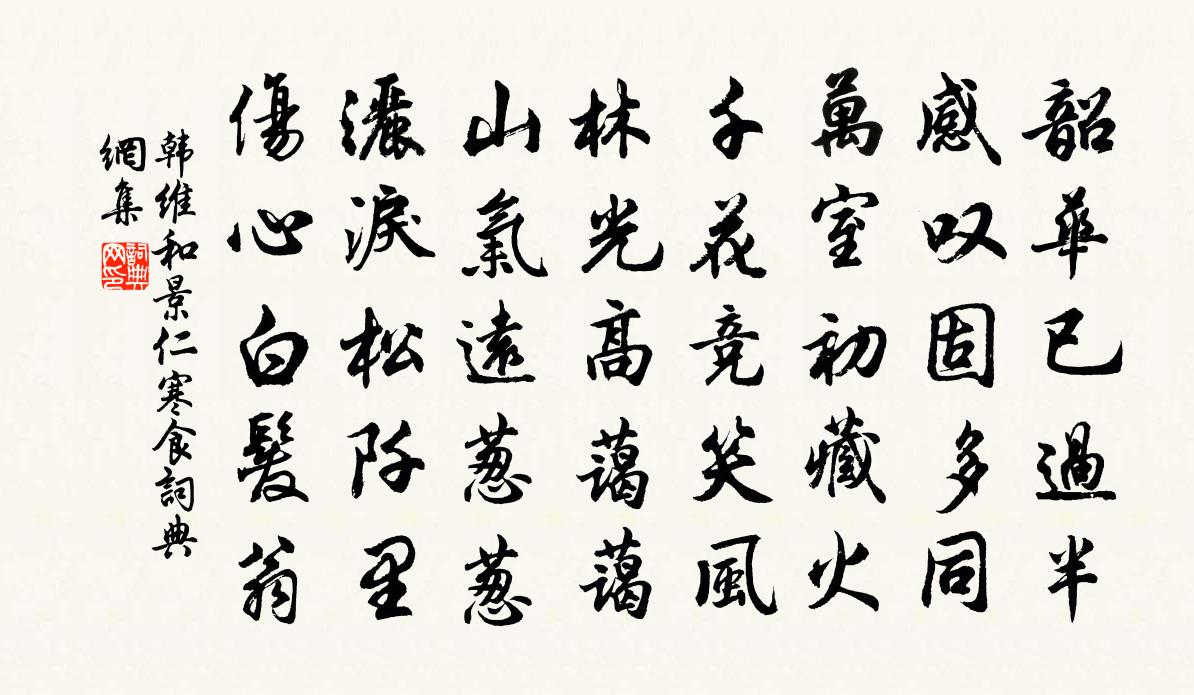 韶華已過半
感叹固多同
萬室初藏火
千花竞笑風
林光高藹藹
山氣遠葱葱
灑淚松阡里
傷心白髮翁
韩维和景仁寒食詞典
網集
詞典
网印